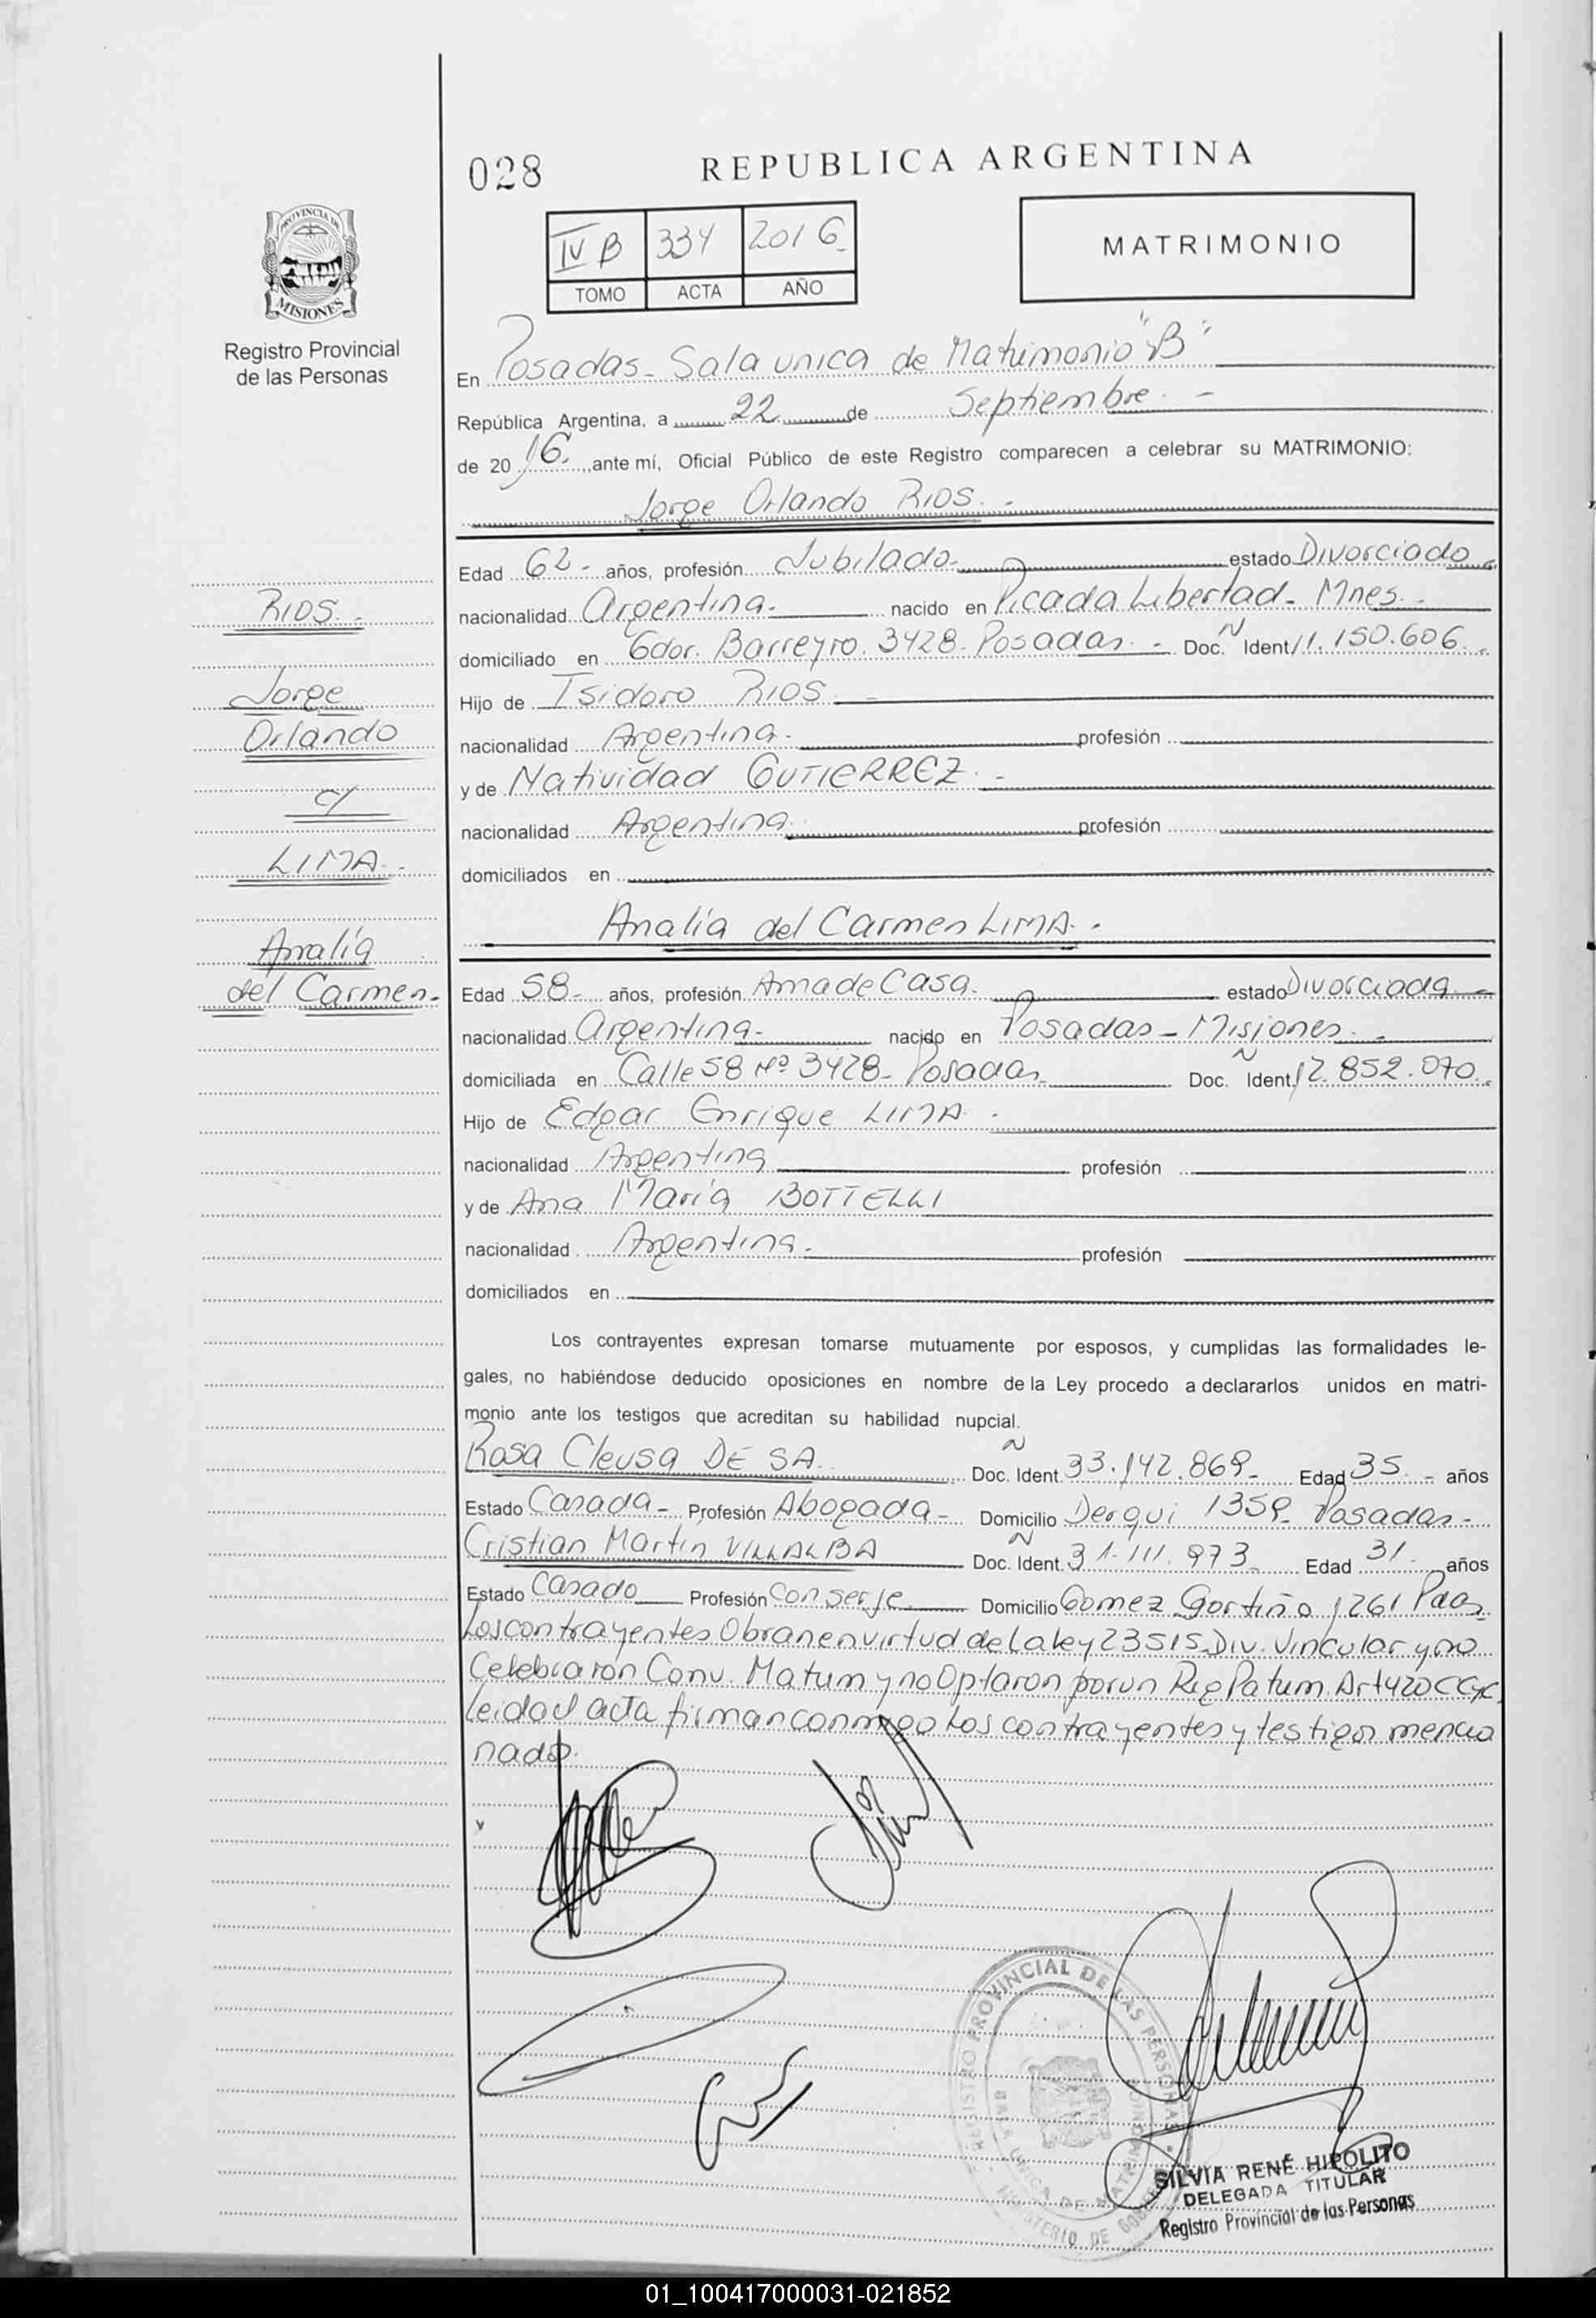 028
REPUBLICA ARGENTINA
PROVINCIA DE
MISIONES
Registro Provincial
de las Personas
IV B 334 2016
TOMO ACTA AÑO
MATRIMONIO
En Posadas - Sala unica de Matrimonio "B"
República Argentina, a 22 de Septiembre. -
de 2016. ante mí, Oficial Público de este Registro comparecen a celebrar su MATRIMONIO:
Jorge Orlando RIOS. -
Edad 62 - años, profesión Jubilado - estado Divorciado -
nacionalidad Argentina - nacido en Picada Libertad - Mnes. -
domiciliado en Gdor. Barreyro. 3428 - Posadas. - Doc. Ñ Ident 11.150.606. -
Hijo de Isidoro RIOS -
nacionalidad Argentina - profesión
y de Natividad GUTIERREZ. -
nacionalidad Argentina. profesión
domiciliados en
Analía del Carmen LIMA. -
RIOS. -
Jorge
Orlando
c/
LIMA. -
Analía
del Carmen -
Edad 58 - años, profesión Ama de Casa. estado Divorciada -
nacionalidad Argentina - nacido en Posadas - Misiones. -
domiciliada en Calle 58 Nº 3428 - Posadas - Doc. Ñ Ident 12.852.070. -
Hijo de Edgar Enrique LIMA. -
nacionalidad Argentina profesión
y de Ana María BOTTELLI
nacionalidad Argentina. profesión
domiciliados en
Los contrayentes expresan tomarse mutuamente por esposos, y cumplidas las formalidades le-
gales, no habiéndose deducido oposiciones en nombre de la Ley procedo a declararlos unidos en matri-
monio ante los testigos que acreditan su habilidad nupcial.
Rosa Cleusa DE SA. Doc. Ñ Ident. 33.142.869 - Edad 35 - años
Estado Casada - Profesión Abogada - Domicilio Derqui 1359 - Posadas -
Cristian Martín VILLALBA Doc. Ñ Ident. 31.111.973 - Edad 31. años
Estado Casado Profesión Conserje Domicilio Gomez Gortiño 1261 Pdas
Los contrayentes Obran en virtud de La ley 23515 Div. Vincular y no
Celebraron Conv. Matrim y no Optaron por un Reg Patrim. Art 420 CCyC
leida el acta firman conmigo Los contrayentes y testigos mencio
nados.
REGISTRO PROVINCIAL DE LAS PERSONAS
SALA UNICA DE MATRIMONIO
MINISTERIO DE
SILVIA RENÉ HIPOLITO
DELEGADA TITULAR
Registro Provincial de las Personas
01_100417000031-021852